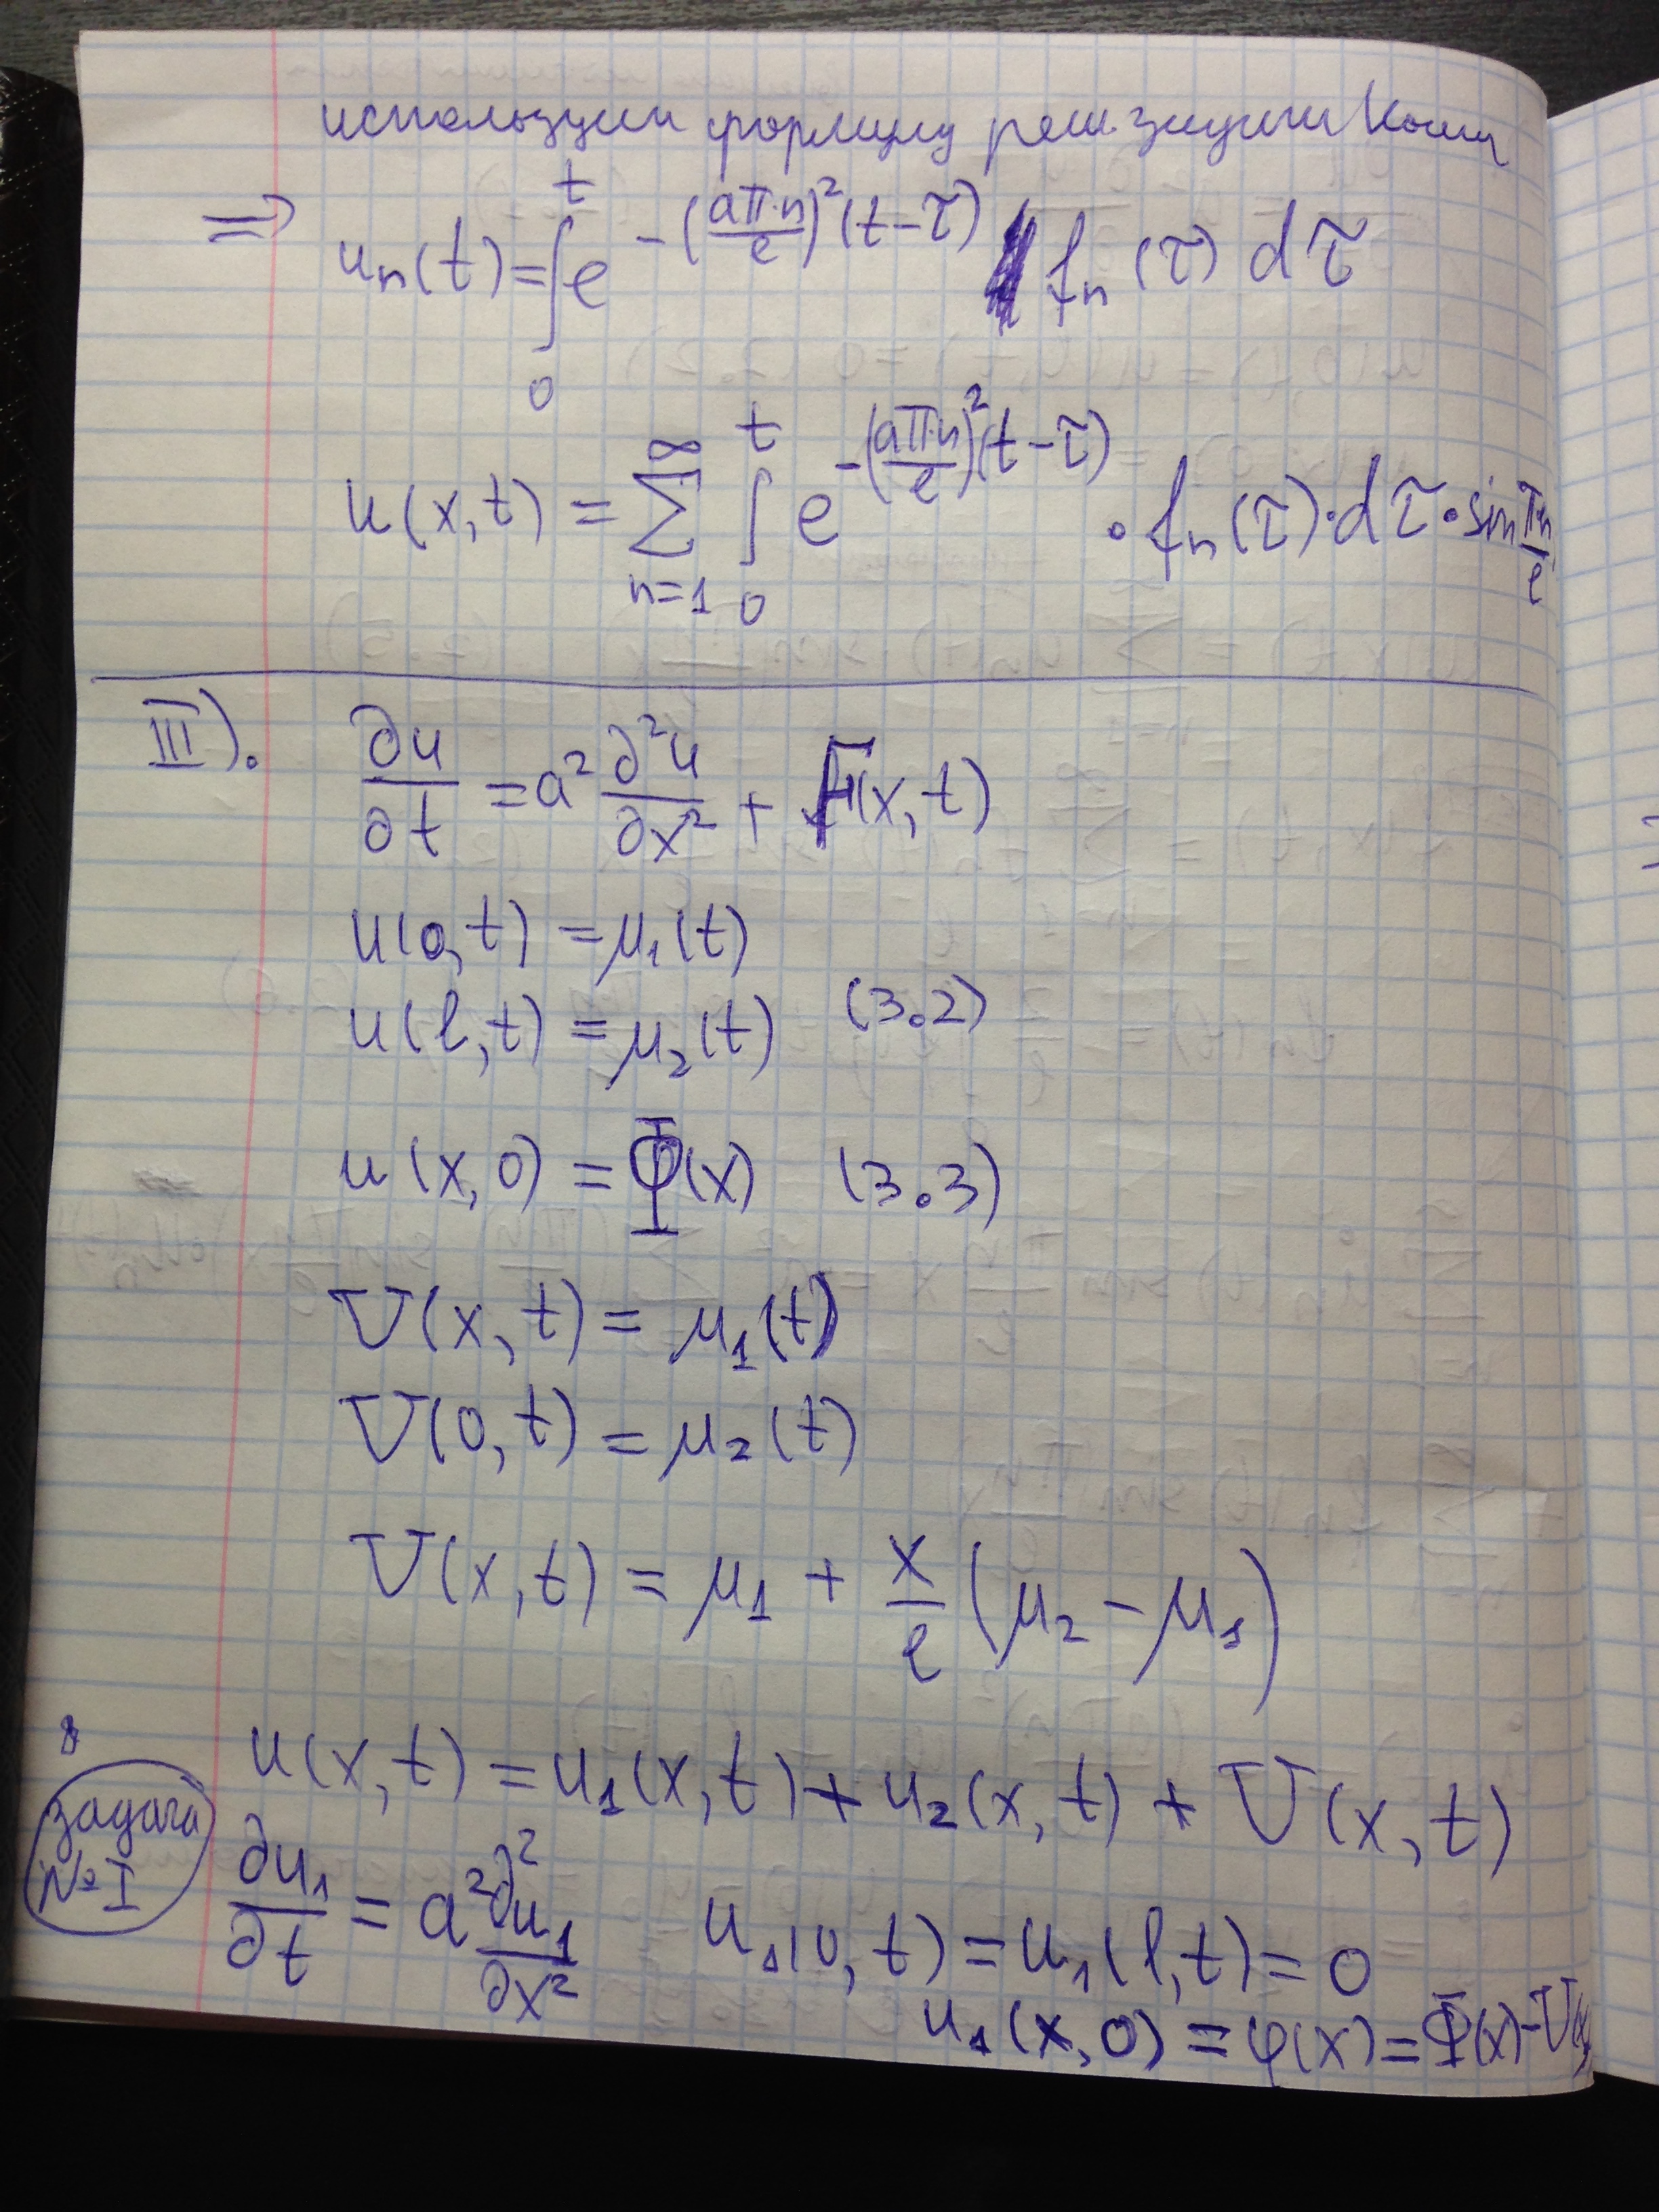 используем формулу реш. задачи Коши
⇒ uₙ(t) = ∫₀ᵗ e^{-(aπn/ℓ)²(t-τ)} fₙ(τ) dτ
u(x,t) = Σ_{n=1}^{∞} ∫₀ᵗ e^{-(aπn/ℓ)²(t-τ)} · fₙ(τ)·dτ·sin πn/ℓ
III). ∂u/∂t = a² ∂²u/∂x² + F(x,t)
u(0,t) = μ₁(t)
u(ℓ,t) = μ₂(t) (3.2)
u(x,0) = Φ(x) (3.3)
U(x,t) = μ₁(t)
U(0,t) = μ₂(t)
U(x,t) = μ₁ + x/ℓ (μ₂ - μ₁)
u(x,t) = u₁(x,t) + u₂(x,t) + U(x,t)
задача №I
∂u₁/∂t = a² ∂²u₁/∂x² u₁(0,t) = u₁(ℓ,t) = 0
u₁(x,0) = φ(x) = Φ(x) - U(x